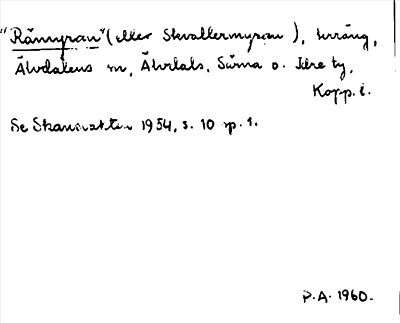 "Råmyran" (eller Skvallermyran), terräng,
Älvdalens sn, Älvdals, Särna o. Idre tg,
Kopp. l.
Se Skansvakten 1954, s. 10 sp. 1.
P.A. 1960.